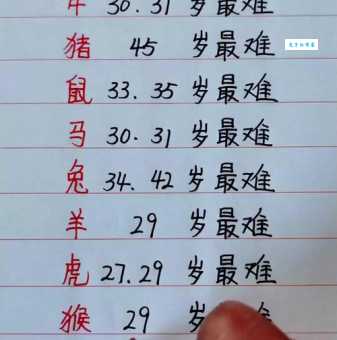 牛 30.31 岁最难
猪 45 岁最难
鼠 33.35 岁最难
马 30.31 岁最难
兔 34.42 岁最难
羊 29 岁最难
虎 27.29 岁最难
猴 29 岁最难